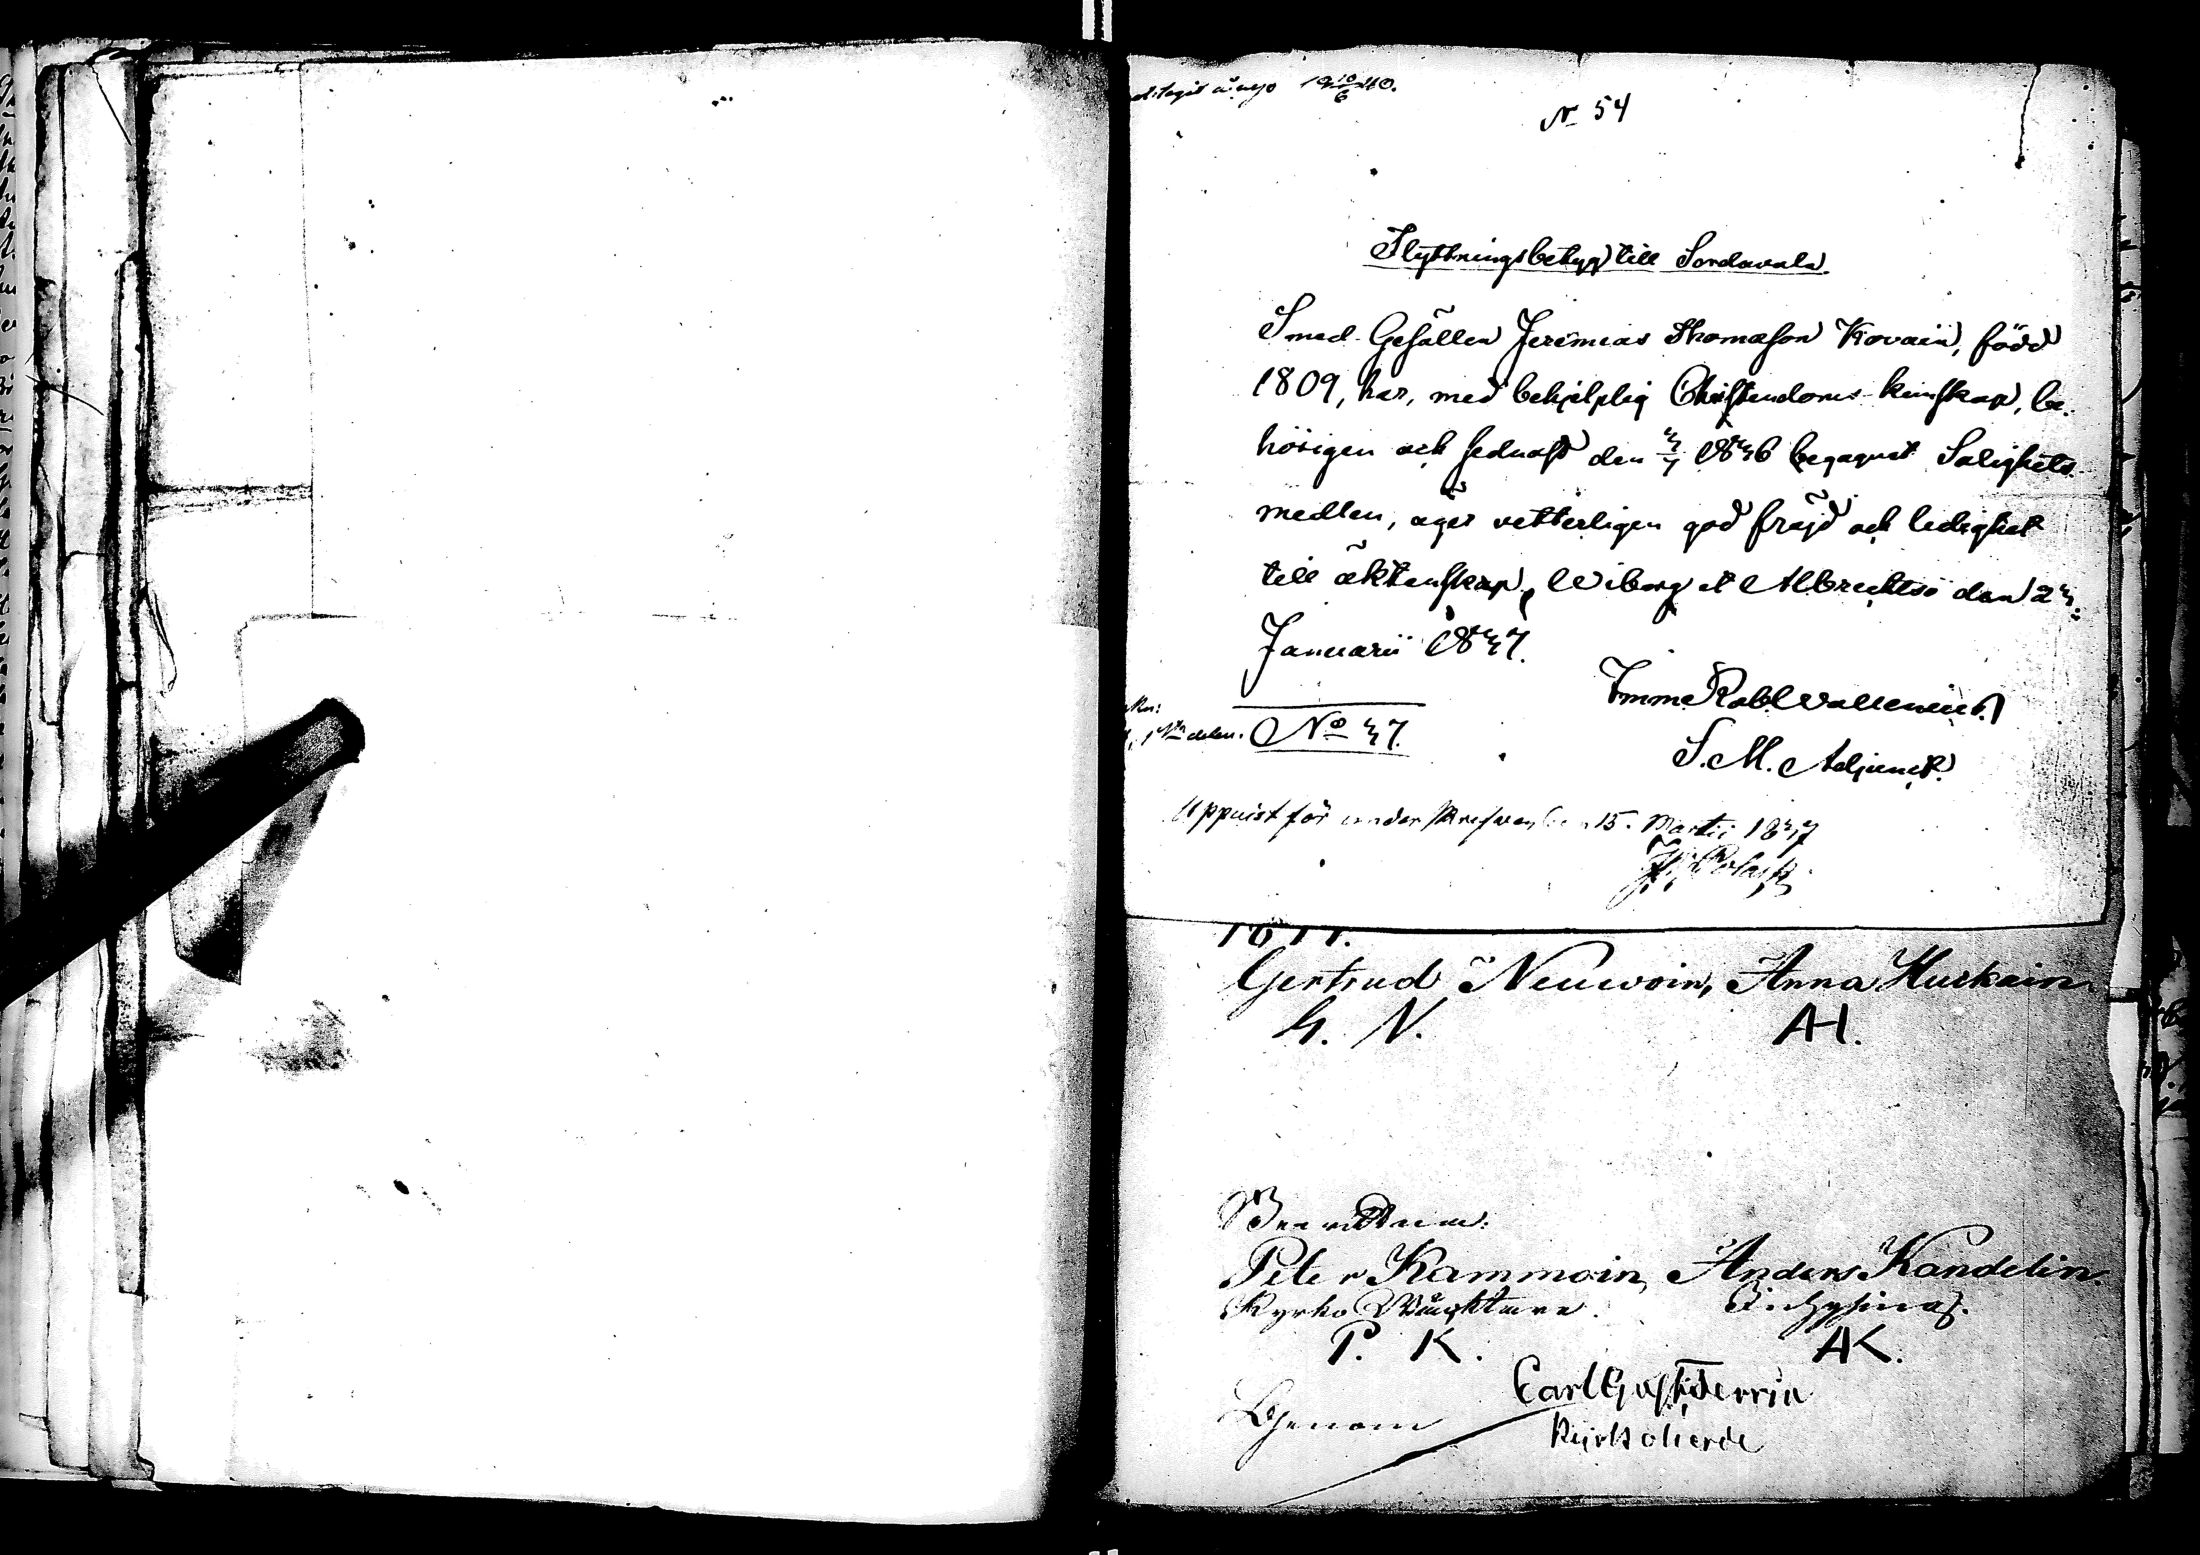 N 54
Flyttningsbetyg till Sordavala.
Smed-Gesällen Jeremias Thomasson Kovain, född
1809, har, med behjelplig Christendoms-kunskap, be-
hörigen och sednast den 4/7 1846 begagnat Salighets
medlen, äger vetterligen god fräjd och ledighet
till äktenskap, Wiborg et Albrechtsö den 24:
Januarii 1847.
S. M. Adjunct.
No 47.
Uppvist för underskrefven den 15. Martii 1847
Gertrud Neuwoin, Anna Hurkain
G. N. AH.
Bevittna:
Peter Kammoin, Anders Kandelin.
Kyrko Wäcktare.
P. K. AK.
Genom Carl Gust. Terrin
Kyrkoherde